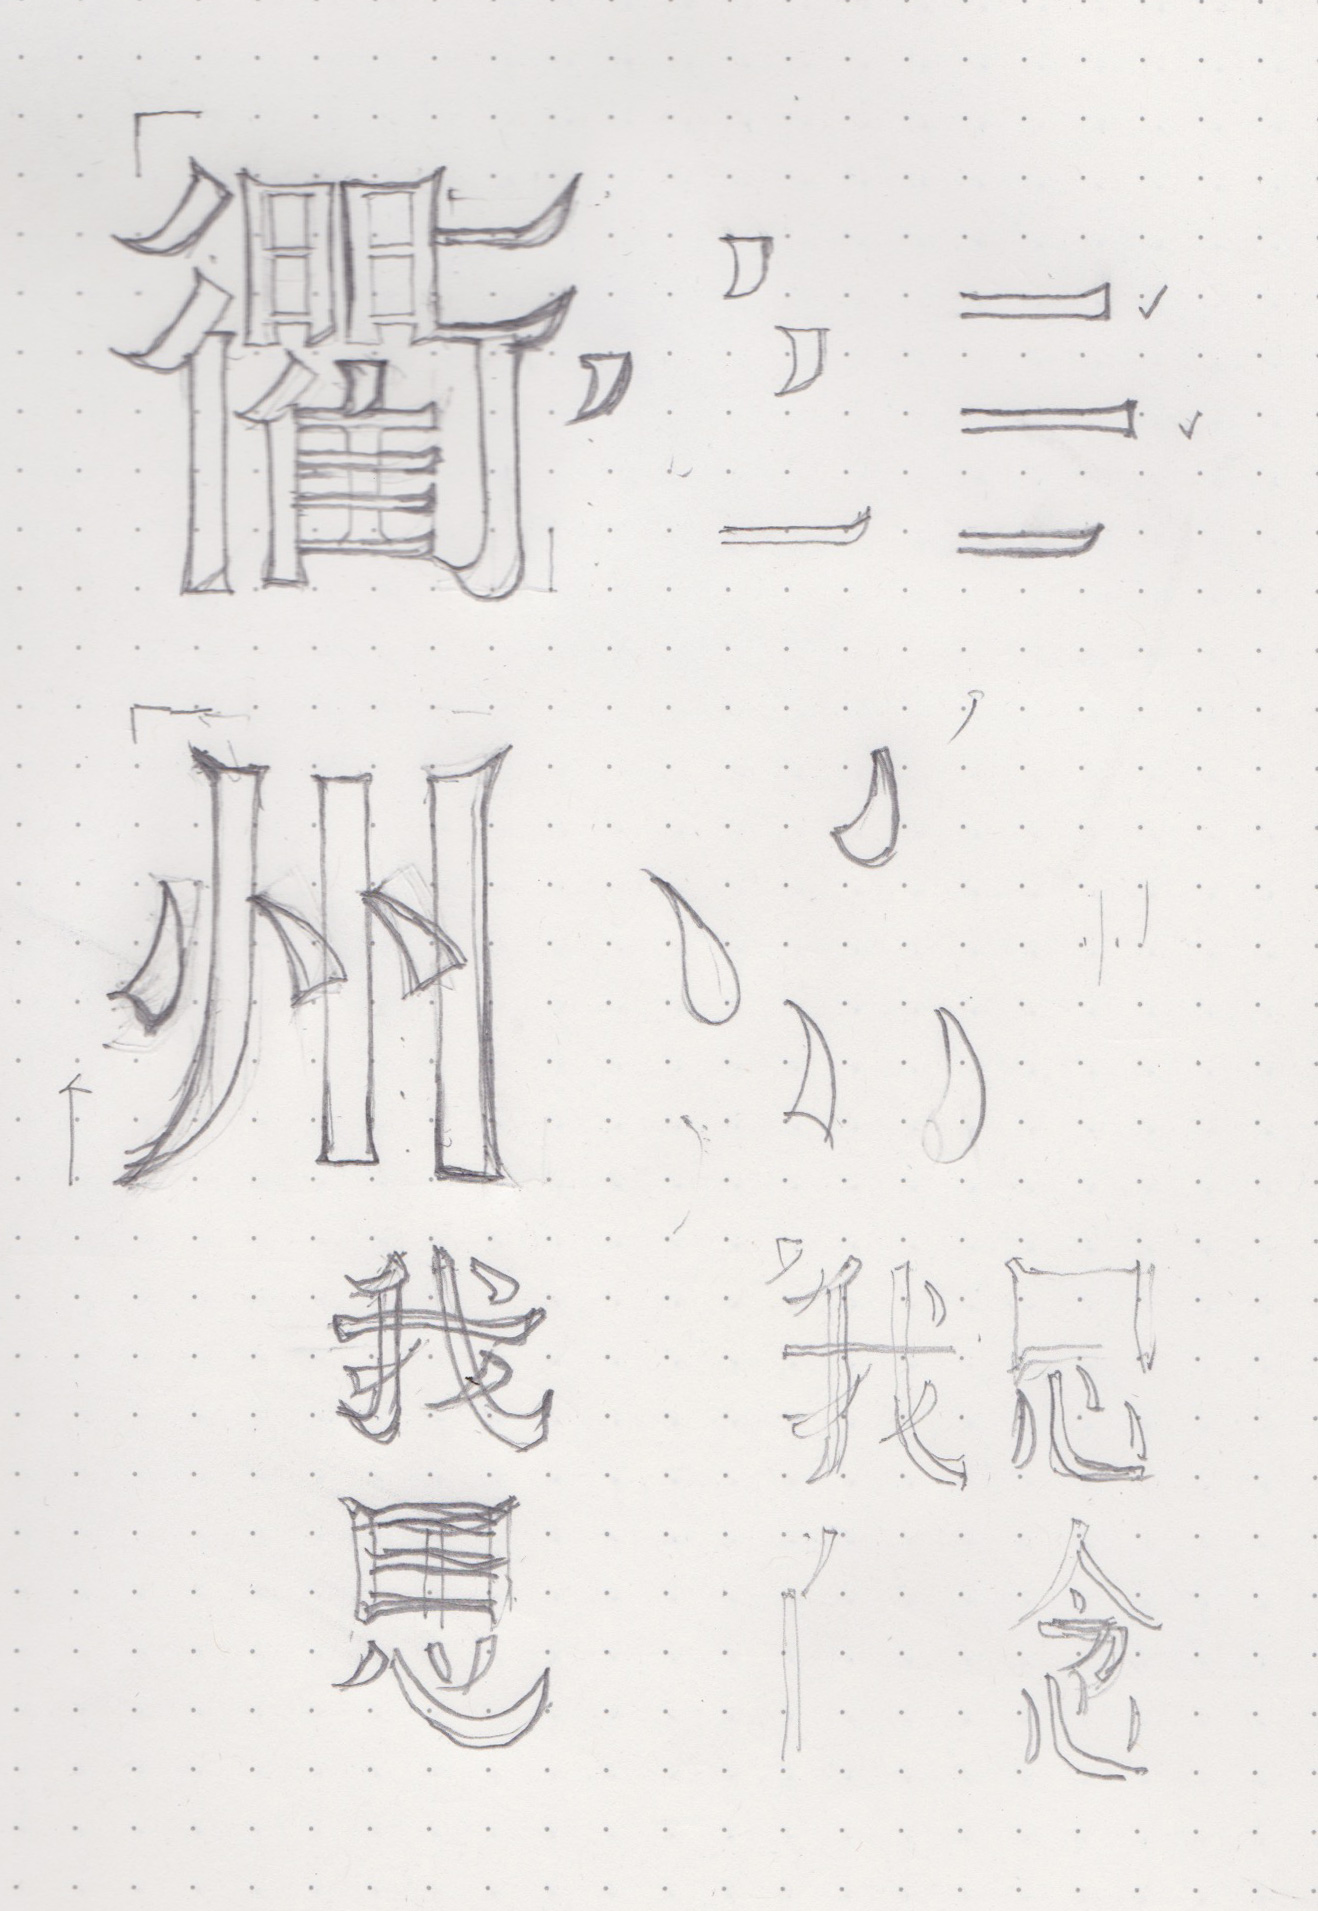 衢
州
我
思
我
念